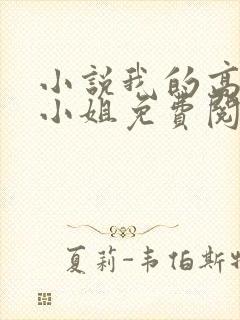 小说我的高
小姐免费阅
夏莉-韦伯斯特